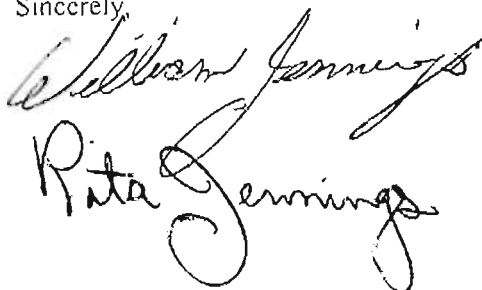 Sincerely,
William Jennings
Rita Jennings